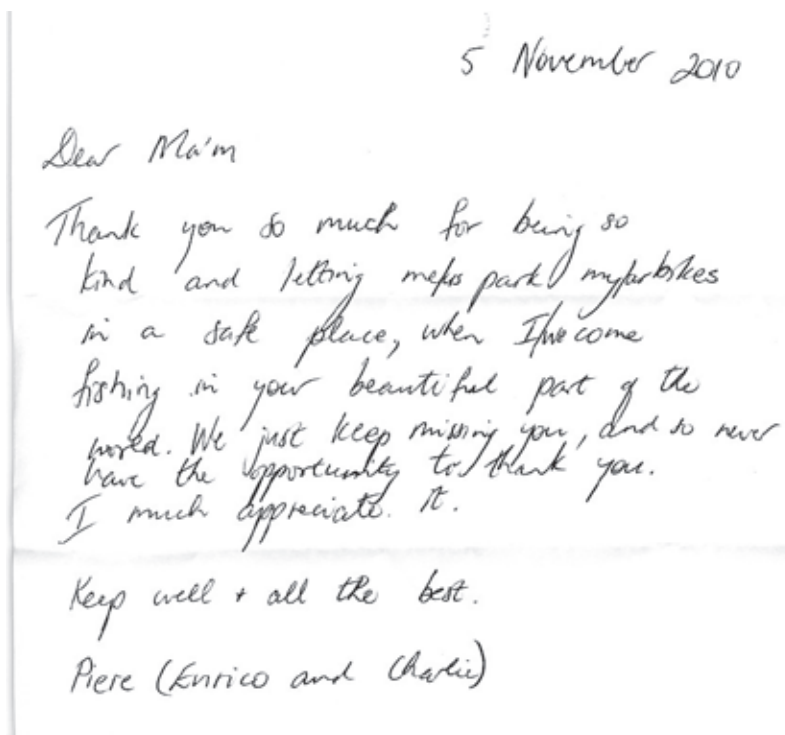 5 November 2010
Dear Ma'm
Thank you so much for being so
kind and letting me/us park my/our bikes
in a safe place, when I/we come
fishing in your beautiful part of the
world. We just keep missing you, and so never
have the opportunity to thank you.
I much appreciate. it.
Keep well + all the best.
Piere (Enrico and Charlie)